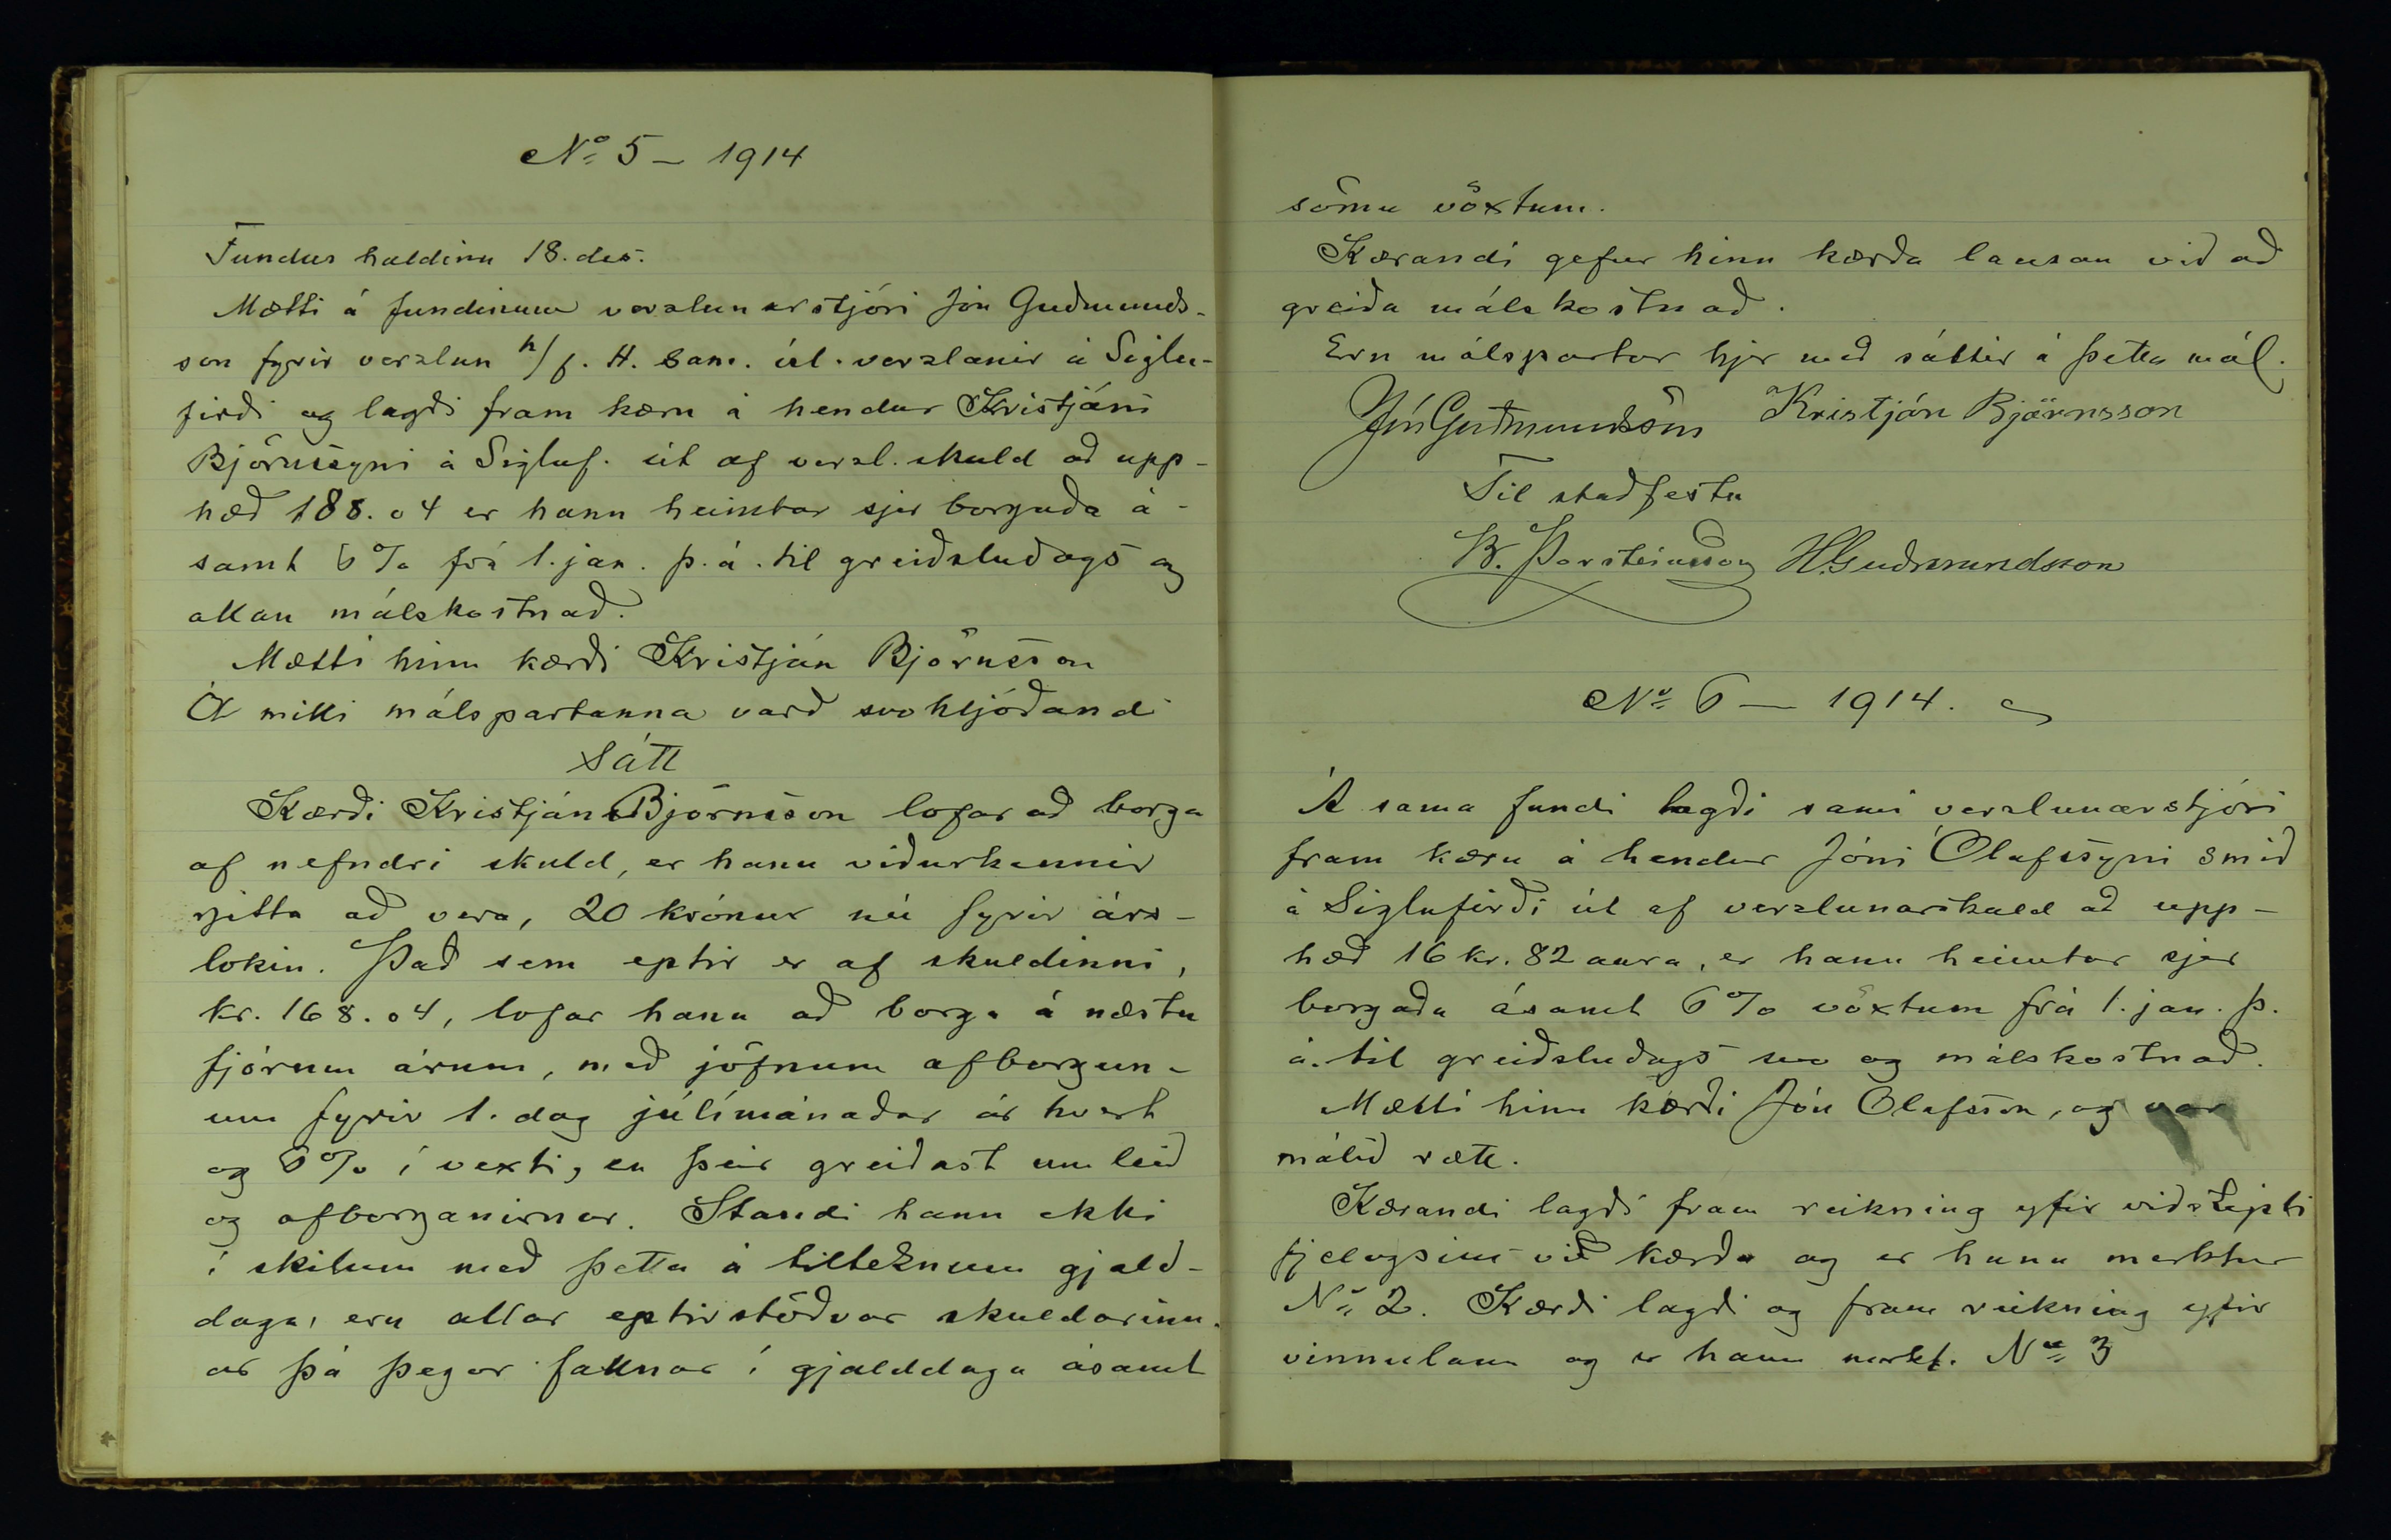 No 5 – 1914
Fundur haldinn 18. des.
Mætti á fundinum verzlunarstjóri Jón Guðmunds-
son fyrir verzlun h/f. H. sam. ísl. verzlanir á Siglu-
firði og lagði fram kæru á hendur Kristjáni
Björnssyni á Sigluf. út af verzl. skuld að upp-
hæð 188.04 er hann heimtar sjer borgaða á-
samt 6% frá 1. jan. þ. á. til greiðsludags og
allan málskostnað.
Mætti hinn kærði Kristján Björnsson
Á milli málspartanna varð svohljóðandi
Sátt
Kærði Kristján Björnsson lofar að borga
af nefndri skuld, er hann viðurkennir
rjetta að vera, 20 krónur nú fyrir árs-
lokin. Það sem eptir er af skuldinni,
kr. 168.04, lofar hann að borga á næstu
fjórum árum, með jöfnum afborgun-
um fyrir 1. dag júlímánaðar ár hvert
og 6% í vexti, en þeir greiðast um leið
og afborganirnar. Standi hann ekki
í skilum með þetta á tilteknum gjald-
daga, eru allar eptirstöðvar skuldarinn-
ar þá þegar fallnar í gjalddaga ásamt
sömu vöxtum.
Kærandi gefur hinn kærða lausan við að
greiða málskostnað.
Eru málspartar hjer með sáttir á þetta mál.
Jón Guðmundsson Kristján Björnsson
Til staðfestu
B. Þorsteinsson H. Guðmundsson
No 6 – 1914.
Á sama fundi lagði sami verzlunarstjóri
fram kæru á hendur Jóni Ólafssyni smið
á Siglufirði út af verzlunarskuld að upp-
hæð 16 kr. 82 aura, er hann heimtar sjer
borgaða ásamt 6% vöxtum frá 1. jan. þ.
á. til greiðsludags svo og málskostnað.
Mætti hinn kærði Jón Olafsson, og var
málið rætt.
Kærandi lagði fram reikning yfir viðskipti
fjelagsins við kærða og er hann merktur
No 2. Kærði lagði og fram reikning yfir
vinnulaun og er hann merkt. No 3